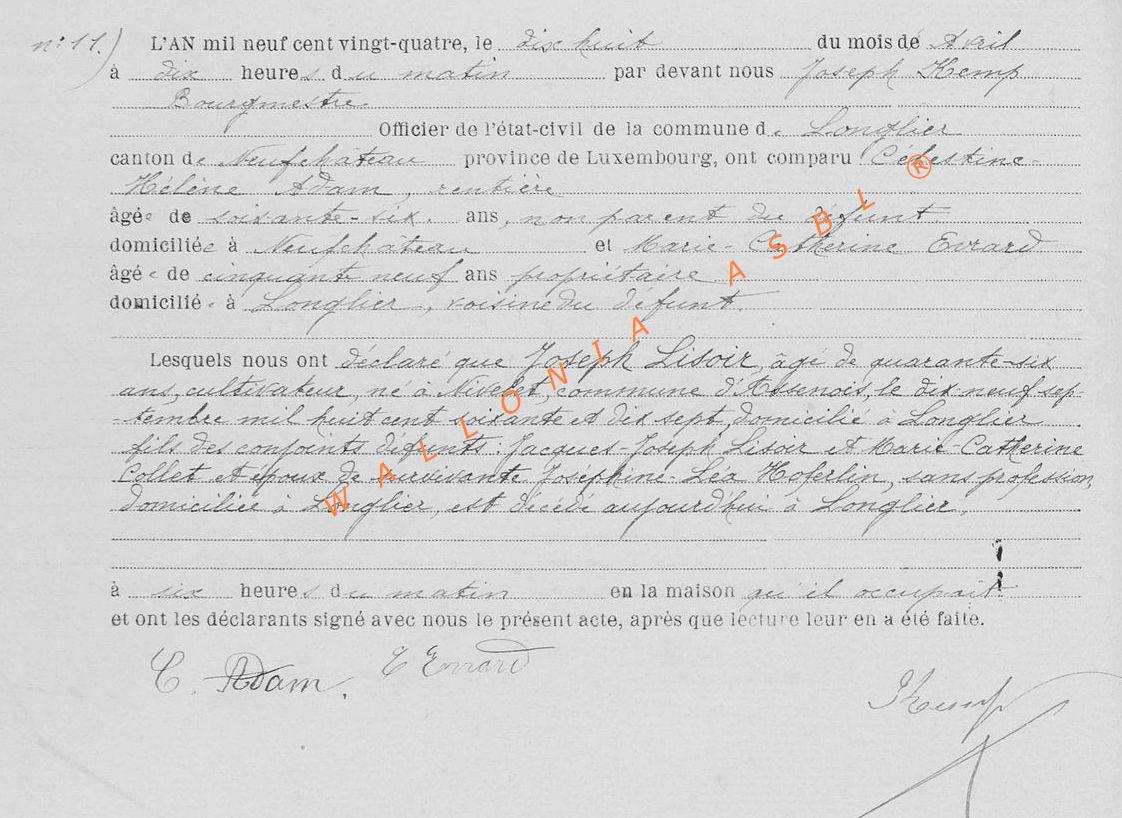 n° 11.) L'AN mil neuf cent vingt-quatre, le dix huit du mois de Avril
à dix heures du matin par devant nous Joseph Kemp
Bourgmestre
Officier de l'état-civil de la commune de Longlier
canton de Neufchâteau province de Luxembourg, ont comparu Célestine-
Hélène Adam, rentière
âgée de soixante-six ans, non parent du défunt
domiciliée à Neufchâteau et Marie-Catherine Evrard
âgée de cinquante neuf ans propriétaire
domiciliée à Longlier, voisine du défunt.
Lesquels nous ont déclaré que Joseph Lisoir, âgé de quarante-six
ans, cultivateur, né à Nivelet, commune d'Assenois, le dix-neuf sep-
-tembre mil huit cent soixante et dix sept, domicilié à Longlier
fils des conjoints défunts : Jacques-Joseph Lisoir et Marie-Catherine
Collet et époux de survivante Joséphine-Léa Hoferlin, sans profession,
domiciliée à Longlier, est décédé aujourd'hui à Longlier,
à six heures du matin en la maison qu'il occupait
et ont les déclarants signé avec nous le présent acte, après que lecture leur en a été faite.
C. Adam. C Evrard
JKemp
WALLONIA ASBL ®